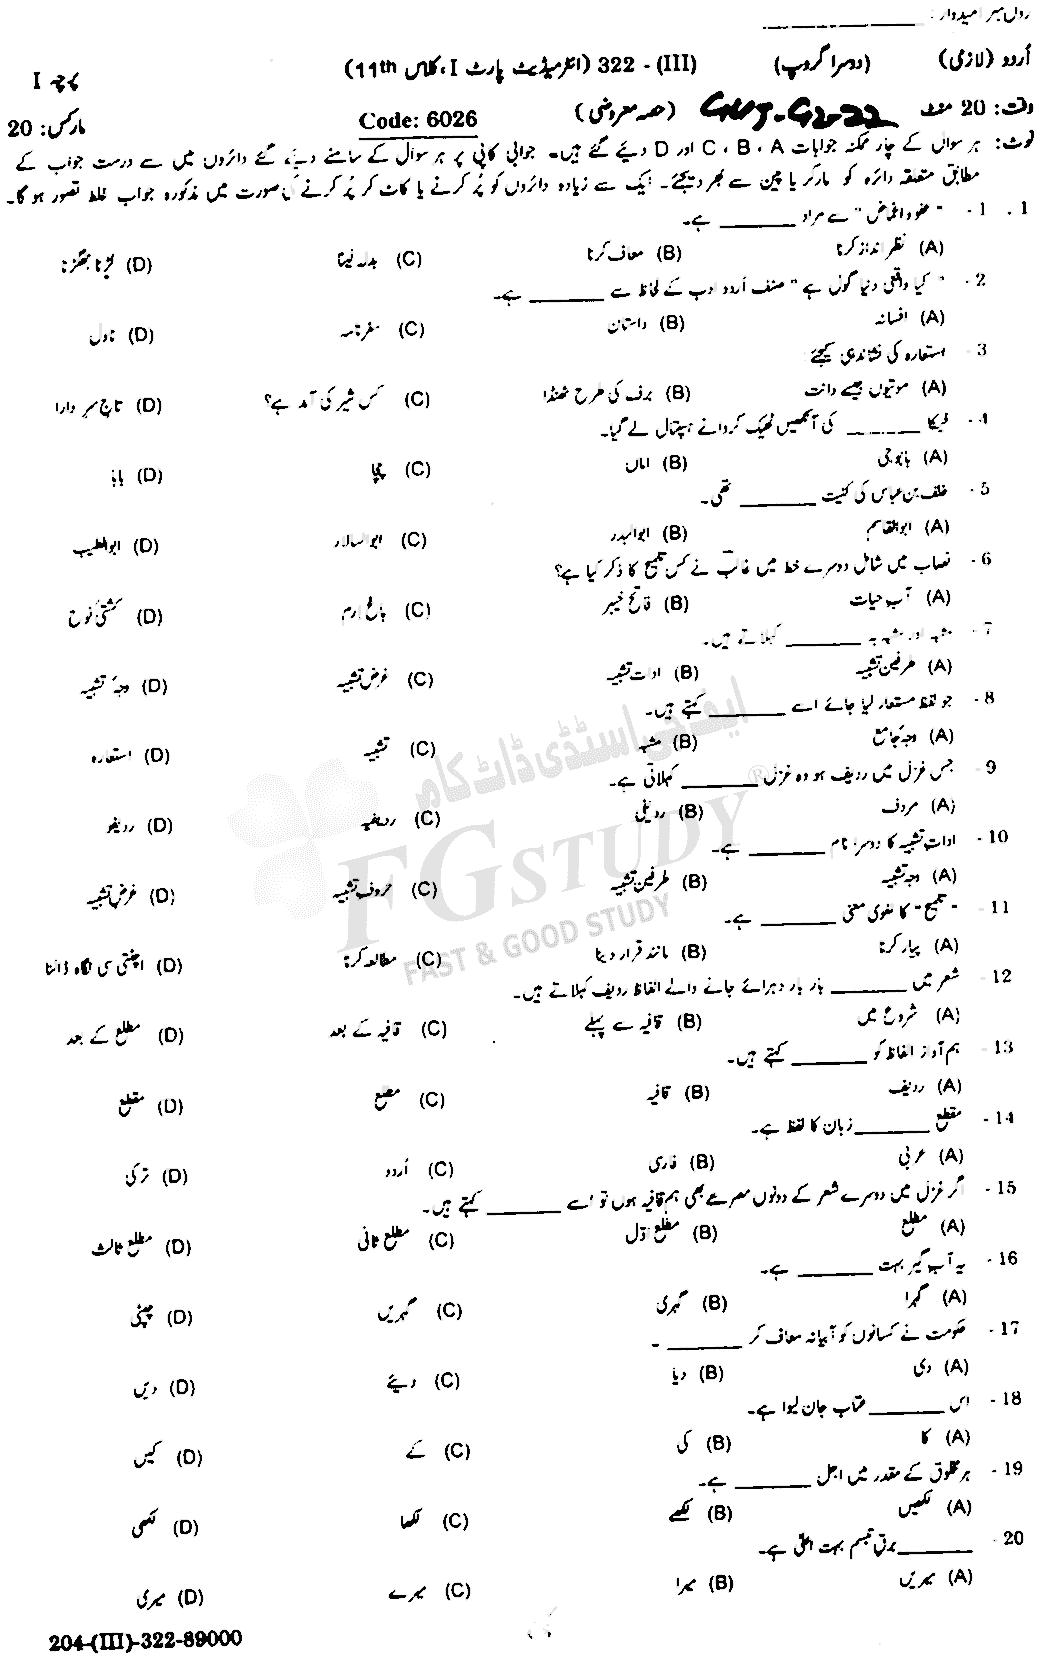 رول نمبر امیدوار: ____________
اُردو (لازمی) (دوسرا گروپ) 322 - (III) (انٹرمیڈیٹ پارٹ I، کلاس 11th) پرچہ I
وقت: 20 منٹ GUJ-G2-22 (حصہ معروضی) Code: 6026 مارکس: 20
نوٹ: ہر سوال کے چار ممکنہ جوابات A ، B ، C اور D دیئے گئے ہیں۔ جوابی کاپی پر ہر سوال کے سامنے دیئے گئے دائروں میں سے درست جواب کے
مطابق متعلقہ دائرہ کو مارکر یا پین سے بھر دیجئے۔ ایک سے زیادہ دائروں کو پُر کرنے یا کاٹ کر پُر کرنے کی صورت میں مذکورہ جواب غلط تصور ہو گا۔
1. 1 - "عفو و اغماض" سے مراد ________ ہے۔
(A) نظر انداز کرنا (B) معاف کرنا (C) بدلہ لینا (D) لڑنا جھگڑنا
2 - "کیا واقعی دنیا گول ہے" صنف اُردو ادب کے لحاظ سے ________ ہے۔
(A) افسانہ (B) داستان (C) سفرنامہ (D) ناول
3 - استعارہ کی نشاندہی کیجئے:
(A) موتیوں جیسے دانت (B) برف کی طرح ٹھنڈا (C) کس شیر کی آمد ہے؟ (D) تاج سر دارا
4 - ٹیکا ________ کی آنکھیں ٹھیک کروانے ہسپتال لے گیا۔
(A) بابو جی (B) اماں (C) چچا (D) بابا
5 - خلف بن عباس کی کنیت ________ تھی۔
(A) ابوالقاسم (B) ابوالبدر (C) ابوالسالار (D) ابوالطیب
6 - نصاب میں شامل دوسرے خط میں غالبؔ نے کس تلمیح کا ذکر کیا ہے؟
(A) آب حیات (B) فاتح خیبر (C) باغ ارم (D) کشتیٔ نوح
7 - مشبہ اور مشبہ بہ ________ کہلاتے ہیں۔
(A) طرفین تشبیہ (B) ادات تشبیہ (C) غرض تشبیہ (D) وجہ تشبیہ
8 - جو لفظ مستعار لیا جائے اسے ________ کہتے ہیں۔
(A) وجہ جامع (B) مشبہ (C) تشبیہ (D) استعارہ
9 - جس غزل میں ردیف ہو وہ غزل ________ کہلاتی ہے۔
(A) مردف (B) ردیفی (C) ردیفیہ (D) ردیفو
10 - ادات تشبیہ کا دوسرا نام ________ ہے۔
(A) وجہ تشبیہ (B) طرفین تشبیہ (C) حروف تشبیہ (D) غرض تشبیہ
11 - "تلمیح" کا لغوی معنی ________ ہے۔
(A) پیار کرنا (B) مانند قرار دینا (C) مطالعہ کرنا (D) اچٹتی سی نگاہ ڈالنا
12 - شعر میں ________ بار بار دہرائے جانے والے الفاظ ردیف کہلاتے ہیں۔
(A) شروع میں (B) قافیہ سے پہلے (C) قافیہ کے بعد (D) مطلع کے بعد
13 - ہم آواز الفاظ کو ________ کہتے ہیں۔
(A) ردیف (B) قافیہ (C) مطلع (D) مقطع
14 - مقطع ________ زبان کا لفظ ہے۔
(A) عربی (B) فارسی (C) اُردو (D) ترکی
15 - اگر غزل میں دوسرے شعر کے دونوں مصرعے بھی ہم قافیہ ہوں تو اسے ________ کہتے ہیں۔
(A) مطلع (B) مطلع اوّل (C) مطلع ثانی (D) مطلع ثالث
16 - یہ آب گیر بہت ________ ہے۔
(A) گہرا (B) گہری (C) گہریں (D) چپٹی
17 - حکومت نے کسانوں کو آبیانہ معاف کر ________ ۔
(A) دی (B) دیا (C) دیئے (D) دیں
18 - اس ________ عتاب جان لیوا ہے۔
(A) کا (B) کی (C) کے (D) کیں
19 - ہر مخلوق کے مقدر میں اجل ________ ہے۔
(A) لکھیں (B) لکھے (C) لکھا (D) لکھی
20 - ________ برق تبسم بہت اچھی ہے۔
(A) میریں (B) میرا (C) میرے (D) میری
204-(III)-322-89000
ایف جی اسٹڈی ڈاٹ کام
FGSTUDY ®
FAST & GOOD STUDY